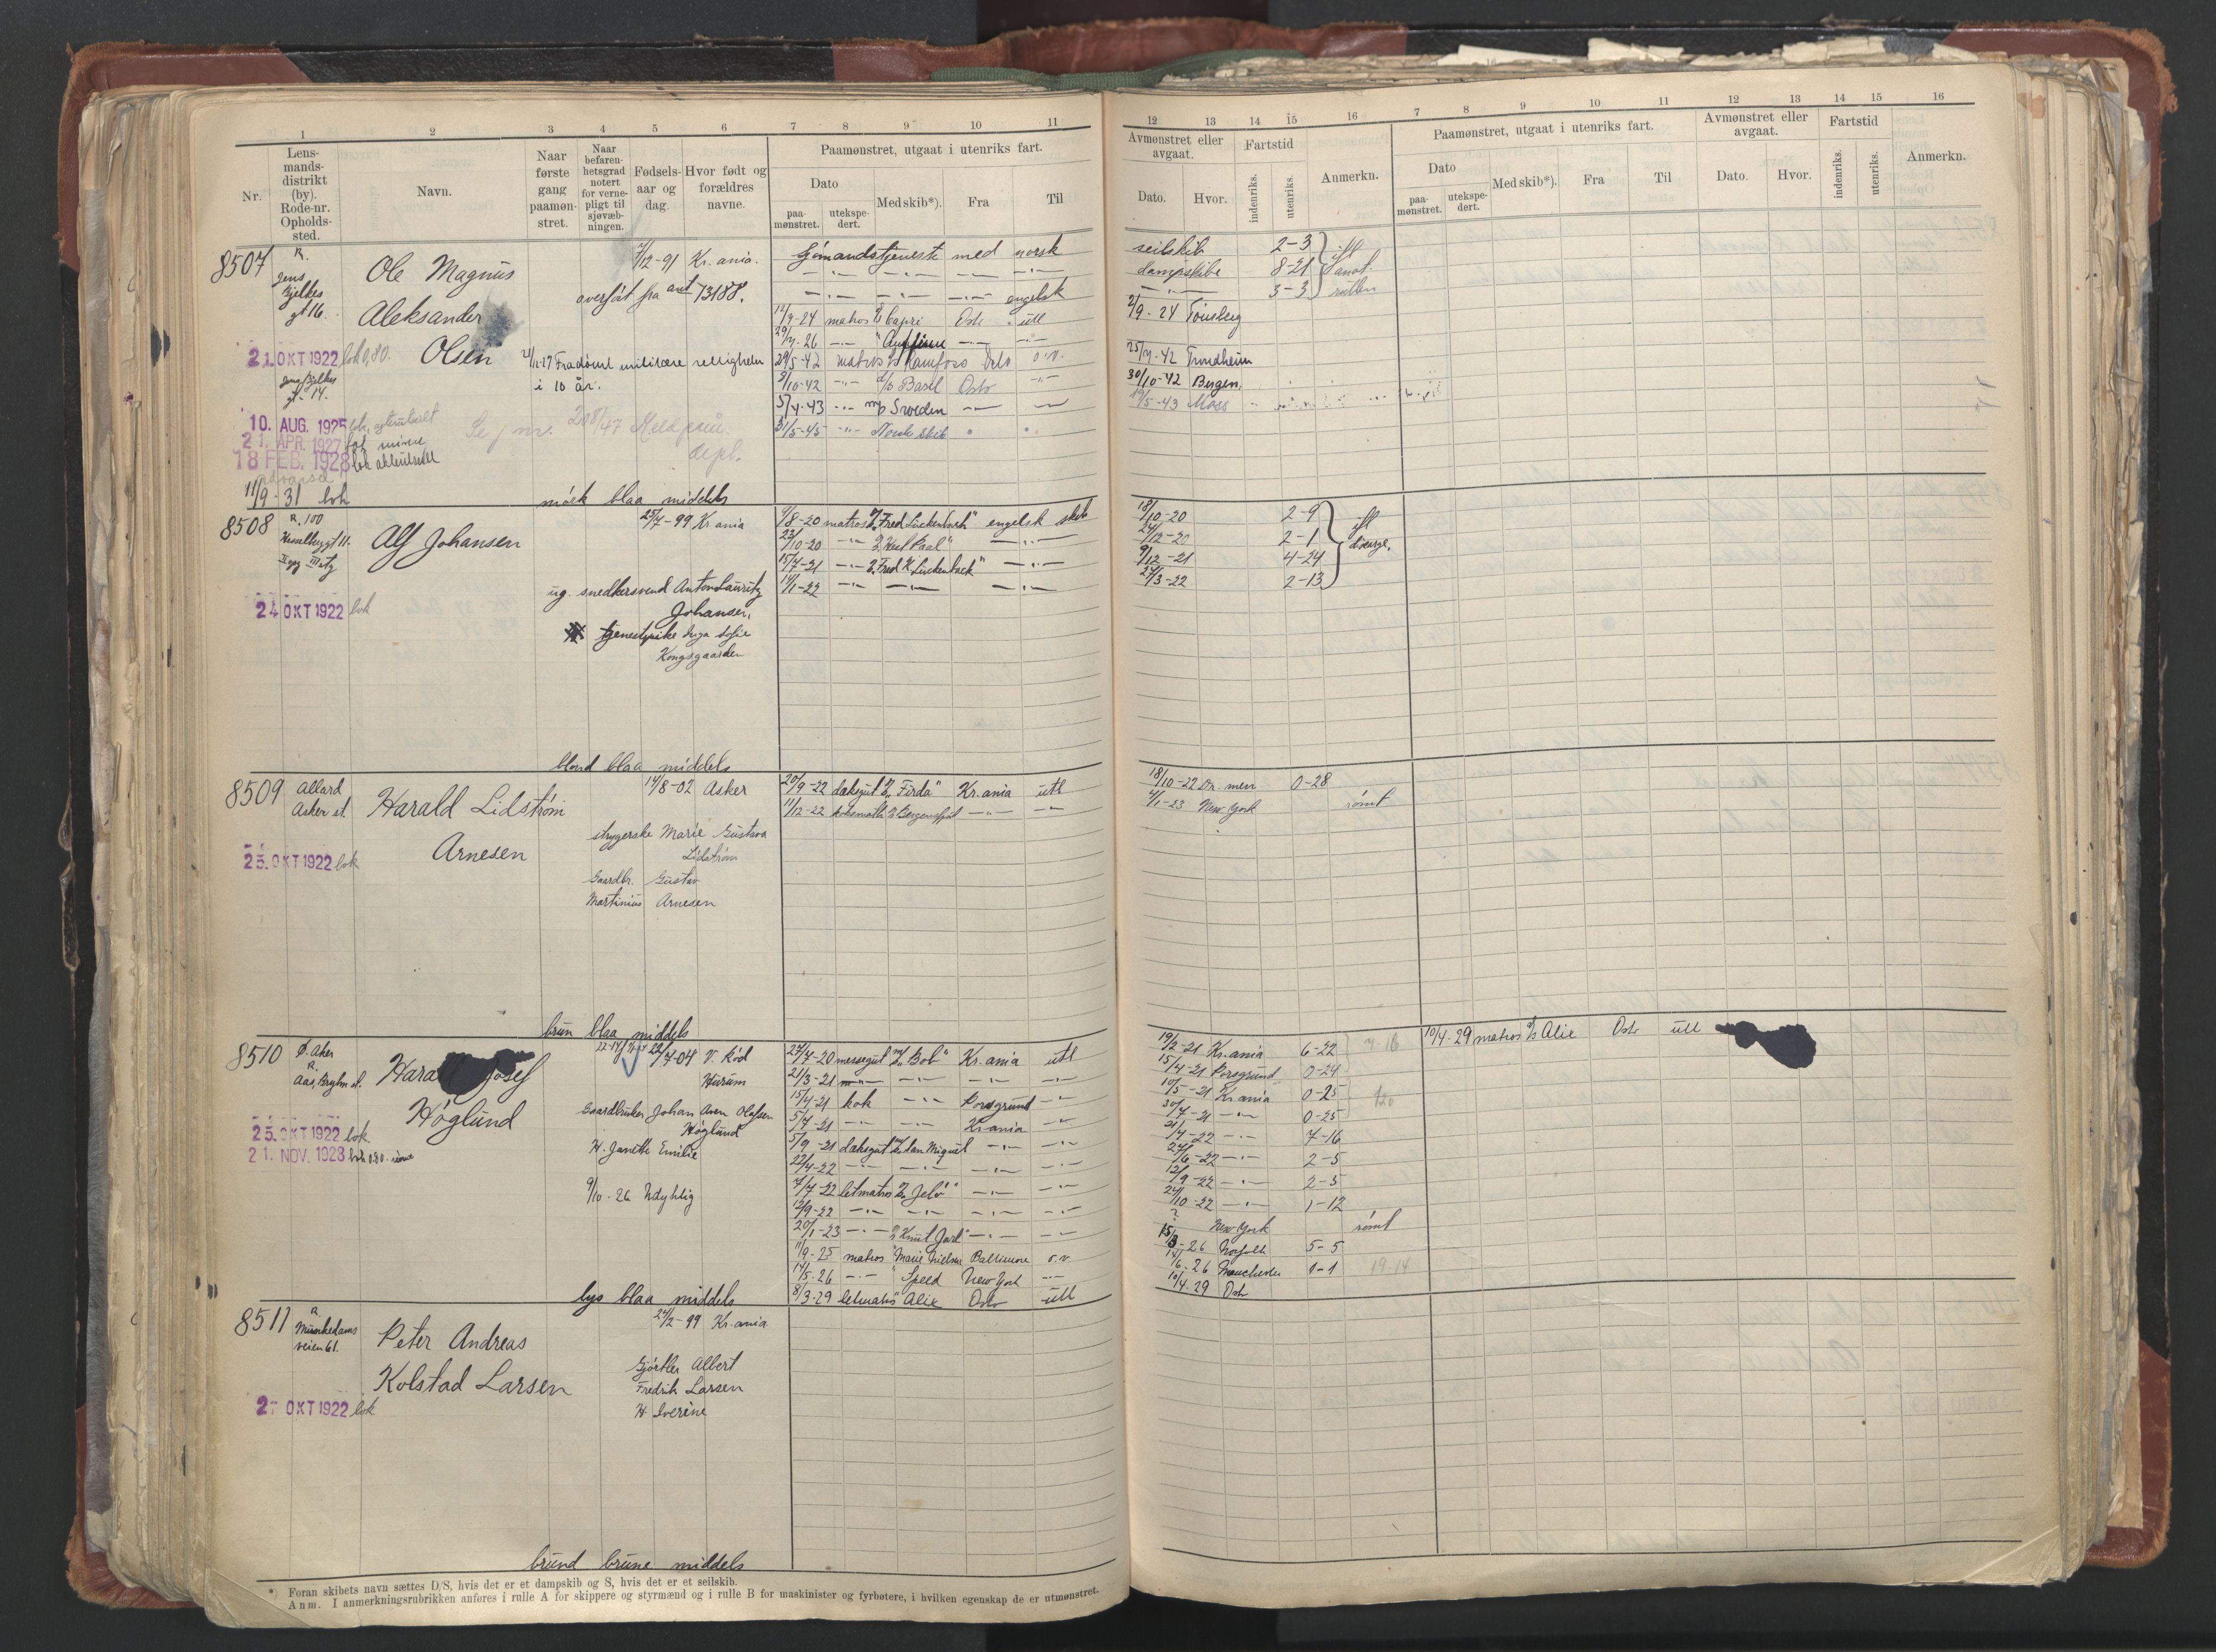 1 2 3 4 5 6 7 8 9 10 11
Nr.
Lens-
mands-
distrikt
(by).
Rode-nr.
Opholds-
sted.
Navn.
Naar
første
gang
paamøn-
stret.
Naar
befaren-
hetsgrad
notert
for verne-
pligt til
sjøvæb-
ningen.
Fødsels-
aar og
dag.
Hvor født og
forældres
navne.
Paamønstret, utgaat i utenriks fart.
Dato
paa-
mønstret.
utekspe-
dert.
Med skib*).
Fra
Til
12 13 14 15 16 7 8 9 10 11 12 13 14 15 16
Avmønstret eller
avgaat.
Dato. Hvor.
Fartstid
indenriks. utenriks.
Anmerkn.
Paamønstret, utgaat i utenriks fart.
Dato
paa-
mønstret.
utekspe-
dert.
Med skib*). Fra Til
Avmønstret eller
avgaat.
Dato. Hvor.
Fartstid
indenriks. utenriks.
Anmerkn.
8507 R.
Jens
Bjelkes
gt 16.
Ole Magnus
Aleksander
Olsen
7/12-91 Kr.ania.
overført fra ant 73188.
21. OKT 1922 lok 0,80.
Jens Bjelkes
gt. 14.
Fradømt militære rettigheter
i 10 år.
10. AUG. 1925
21. APR. 1927
18 FEB. 1928
11/9-31 lok
208/47
dept.
Sjømandstjeneste med norsk seilskib 2-3
dampskibe 8-21
engelsk 3-3
ifl
rullen
12/7-24 matros Capri Oslo utl 2/9-24 Tønsberg
29/7-26
29/5-42 matros Ramfoss Oslo o.v. 25/7-42 Trondheim
9/10-42 Basel Oslo 30/10-42 Bergen.
5/4-43 Sweden 19/5-43 Moss
31/5-45 Norsk skib
mørk blaa middels
8508 R. 100
Hesselbergt 11.
Alf Johansen
25/7-99 Kr ania
24 OKT 1922 lok
ug. snedkersvend Anton Lauritz
Johansen,
tjenestepike Inga Sofie
Kongsgaarden
9/8-20 matros "Fred Luckenbach" engelsk skib 18/10-20 2-9
23/10-20 24/12-20 2-1
15/7-21 "Fred K. Luckenback" 9/12-21 4-24
14/1-22 27/3-22 2-13
ifl
blond blaa middels
8509 Allard
Asker st.
Harald Lidstrøm
Arnesen
14/8-02 Asker
25. OKT 1922 lok
strygerske Marie Gustava
Lidstrøm
Gaardbr. Gustav
Martinius Arnesen
20/9-22 dæksgut "Firda" Kr.ania utl 18/10-22 Dr. men 0-28
11/12-22 koksmath Bergensfjord 4/1-23 New York rømt
brun blaa middels
8510 Ø. Aker
R.
Aas, Bryhn st.
Harald Josef
Høglund
22/7-04 V. Rød
Hurum
25. OKT 1922 lok
21. NOV. 1923
Gaardbruker Johan Aven Olafsen
Høglund
H. Janette Emilie
9/10-26 Udyktig
24/7-20 messegut "Bob" Kr.ania utl 19/2-21 Kr.ania 6-22
21/3-21 15/4-21 Porsgrund 0-24
15/4-21 kok Porsgrund 10/5-21 Kr ania 0-25
5/7-21 Kr.ania 30/7-21 0-25
5/9-21 dæksgut San Miguel 21/4-22 7-16
22/4-22 27/6-22 2-5
7/7-22 letmatros "Jelø" 12/9-22 2-5
12/9-22 24/10-22 1-12
20/1-23 "Knut Jarl" ? New York rømt
11/9-25 matros Marie Nielsen Baltimore o.v. 15/3-26 Norfolk 5-5
14/5-26 Speed New York 14/6-26 Manchester 1-1 19-14
8/3-29 letmatros Alix Oslo utl 10/4-29 Oslo
10/4-29 matros Alix Oslo utl
lys blaa middels
8511 R
Munkedams
veien 61.
Peter Andreas
Kolstad Larsen
24/2-99 Kr.ania
27 OKT 1922 lok
Gjørtler Albert
Fredrik Larsen
H Severine
brund brune middels
*) Foran skibets navn sættes D/S, hvis det er et dampskib og S, hvis det er et seilskib.
Anm. I anmerkningsrubrikken anføres i rulle A for skippere og styrmænd og i rulle B for maskinister og fyrbøtere, i hvilken egenskap de er utmønstret.